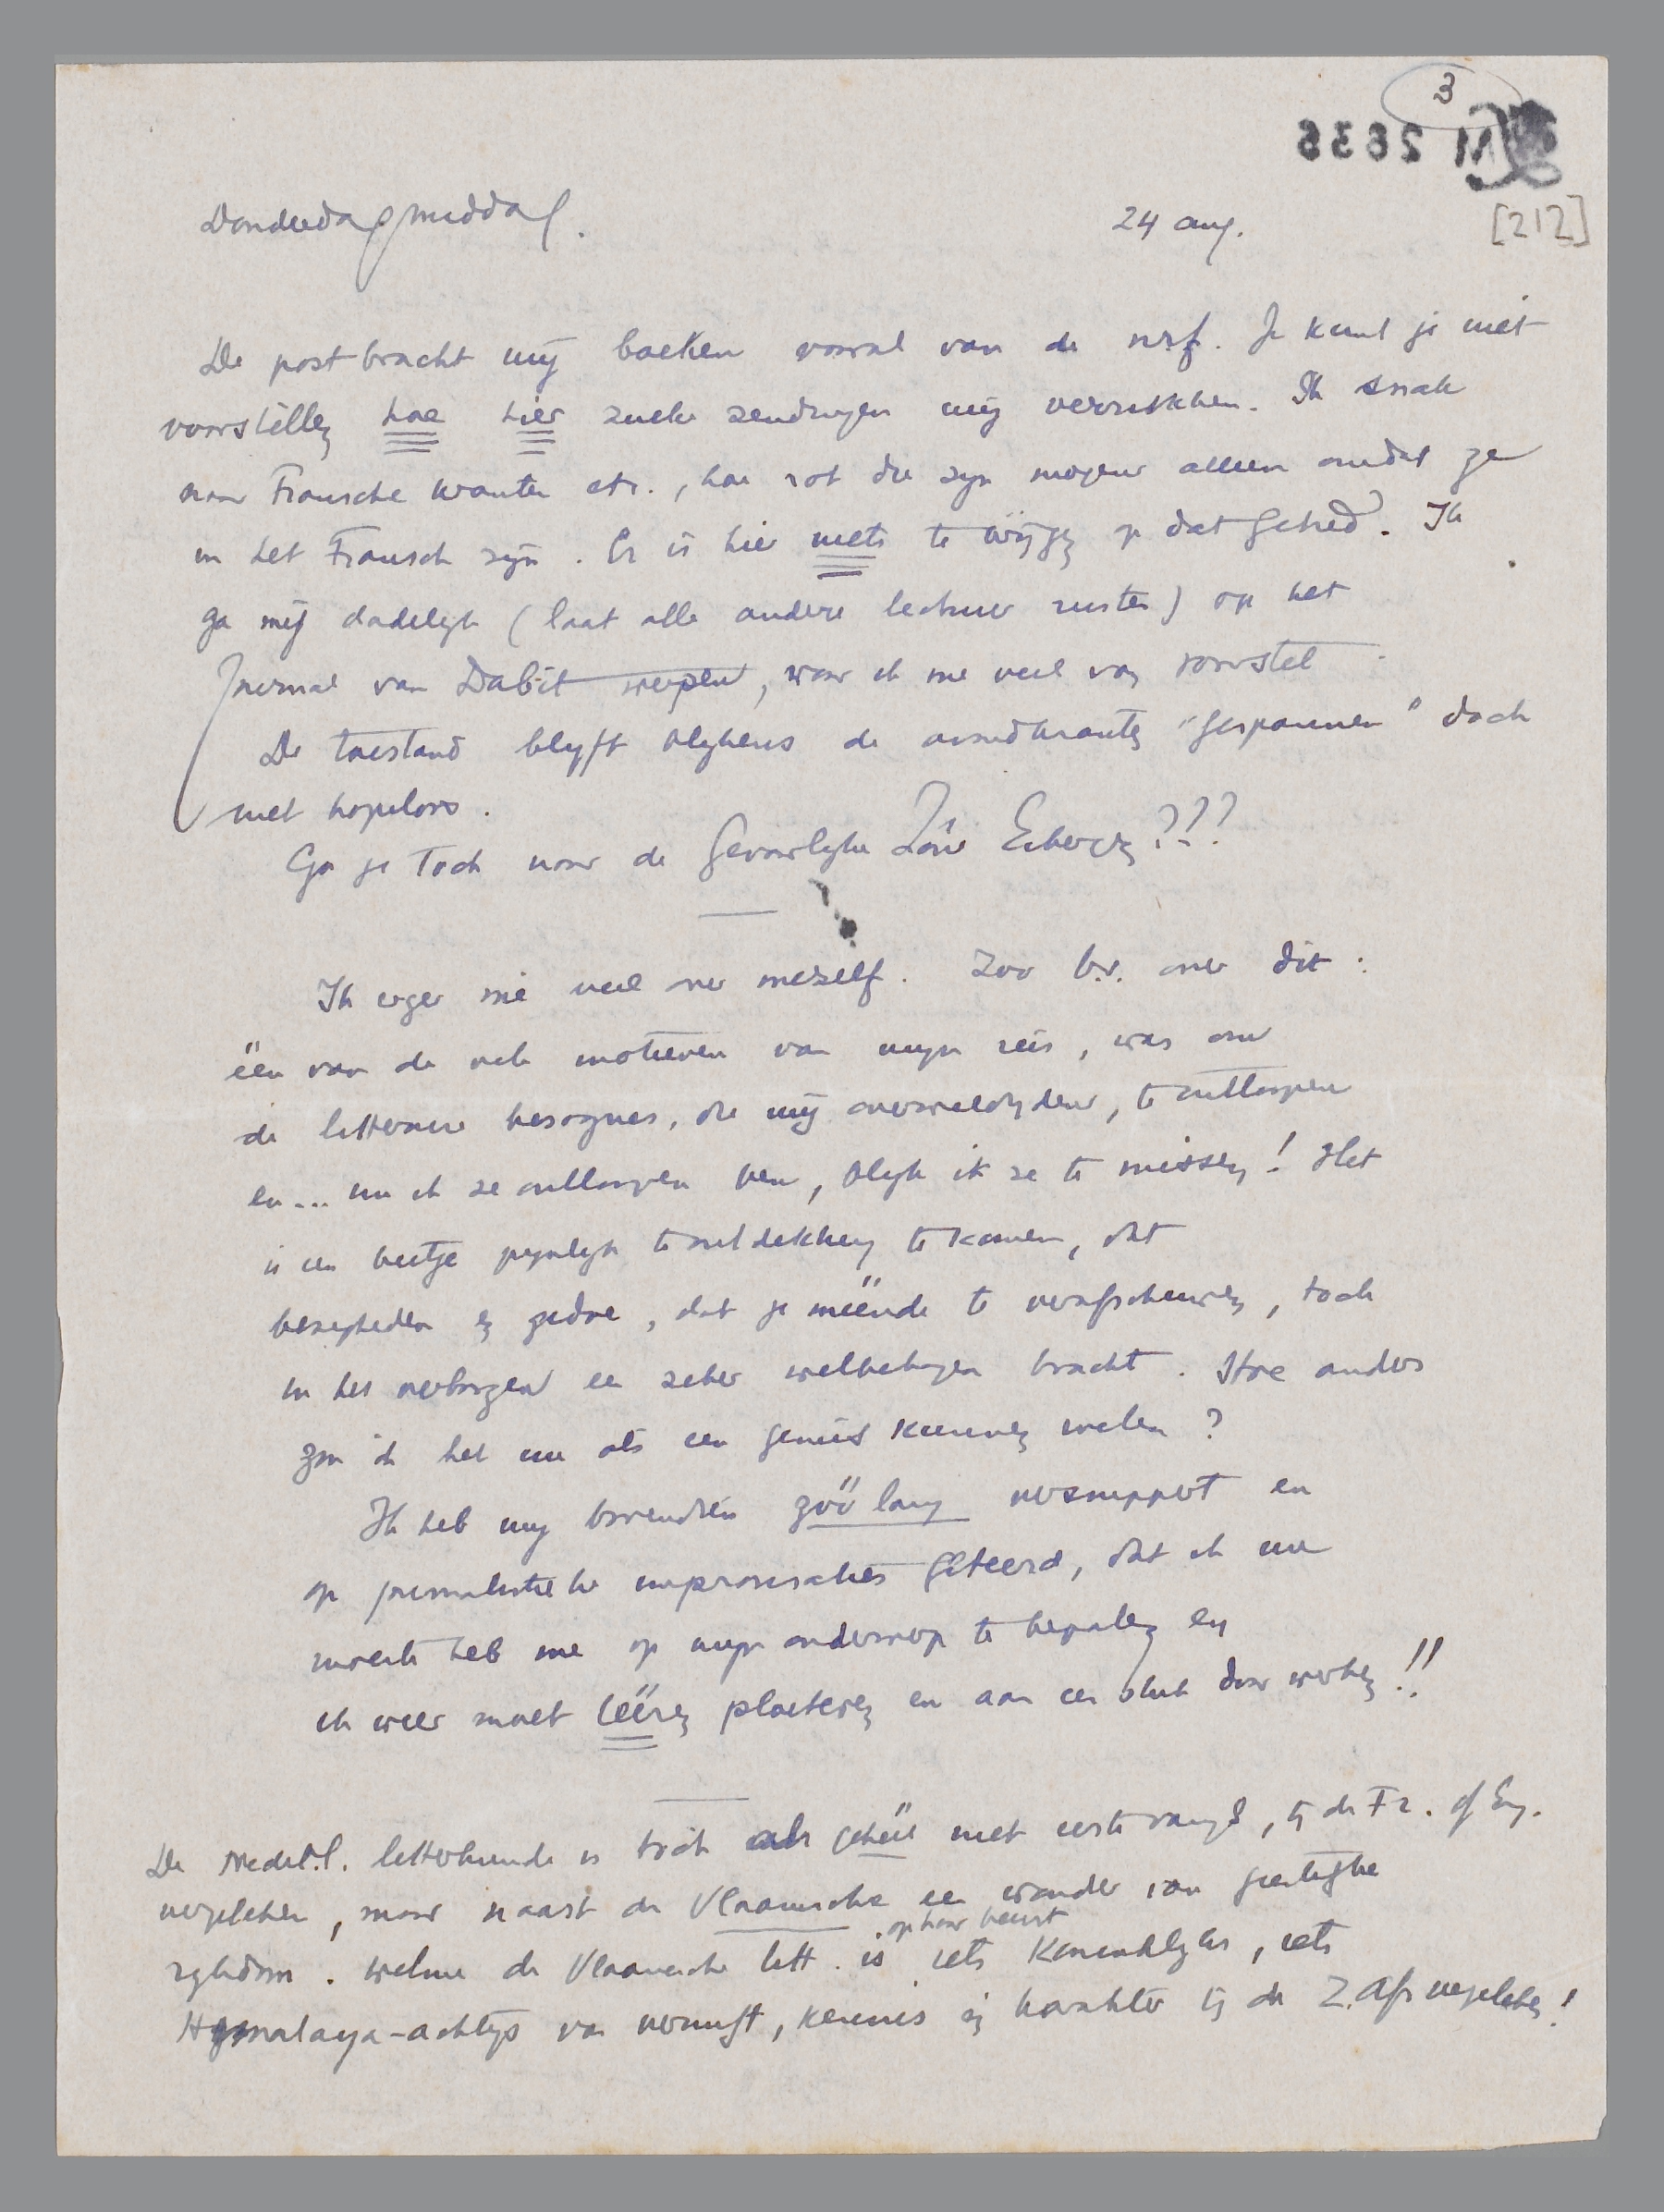 3
LM 2636
[212]
Donderdagmiddag. 24 aug.
De post bracht mij boeken vooral van de nrf. Je kunt je niet
voorstellen hoe hier zulke zendingen mij verrukken. Ik snak
naar Fransche kranten etc., hoe rot die zijn mogen alleen omdat ze
in het Fransch zijn. Er is hier niets te krijgen op dat gebied. Ik
ga mij dadelijk (laat alle andere lectuur rusten) op het
Journal van Dabit werpen, waar ik me veel van voorstel.
De toestand blijft blijkens de avondkranten "gespannen" doch
niet hopeloos.
Ga je toch naar de Gevaarlijke Zône
Ik erger mij veel over mezelf. Zoo b.v. over dit:
één van de vele motieven van mijn reis, was om
de litteraire besognes, die mij overweldigden, te ontloopen
en... nu ik ze ontloopen ben, blijk ik ze te missen! Het
is een beetje pijnlijk tot ontdekking te komen, dat
bezigheden en gedoe, dat je méénde te verafschuwen, toch
in het verborgen een zeker welbehagen bracht. Hoe anders
zou ik het nu als een gemis kunnen voelen?
Ik heb mij bovendien zóó lang versnipperd en
op journalistieke improvisaties geteerd, dat ik nu
moeite heb me op mijn onderwerp te bepalen en
ik weer moet léeren ploeteren en aan een stuk door werken!!
De Nederl. letterkunde is tóch als gehéél niet eerste rangs, bij de Fr. of Eng.
vergeleken, maar naast de Vlaamsche een wonder van geestelijke
rijkdom. Welnu de Vlaamsche litt. is op haar beurt iets Koninklijks, iets
Hymalaya-achtigs van vernuft, kennis en karakter bij de Z. Afr vergeleken!